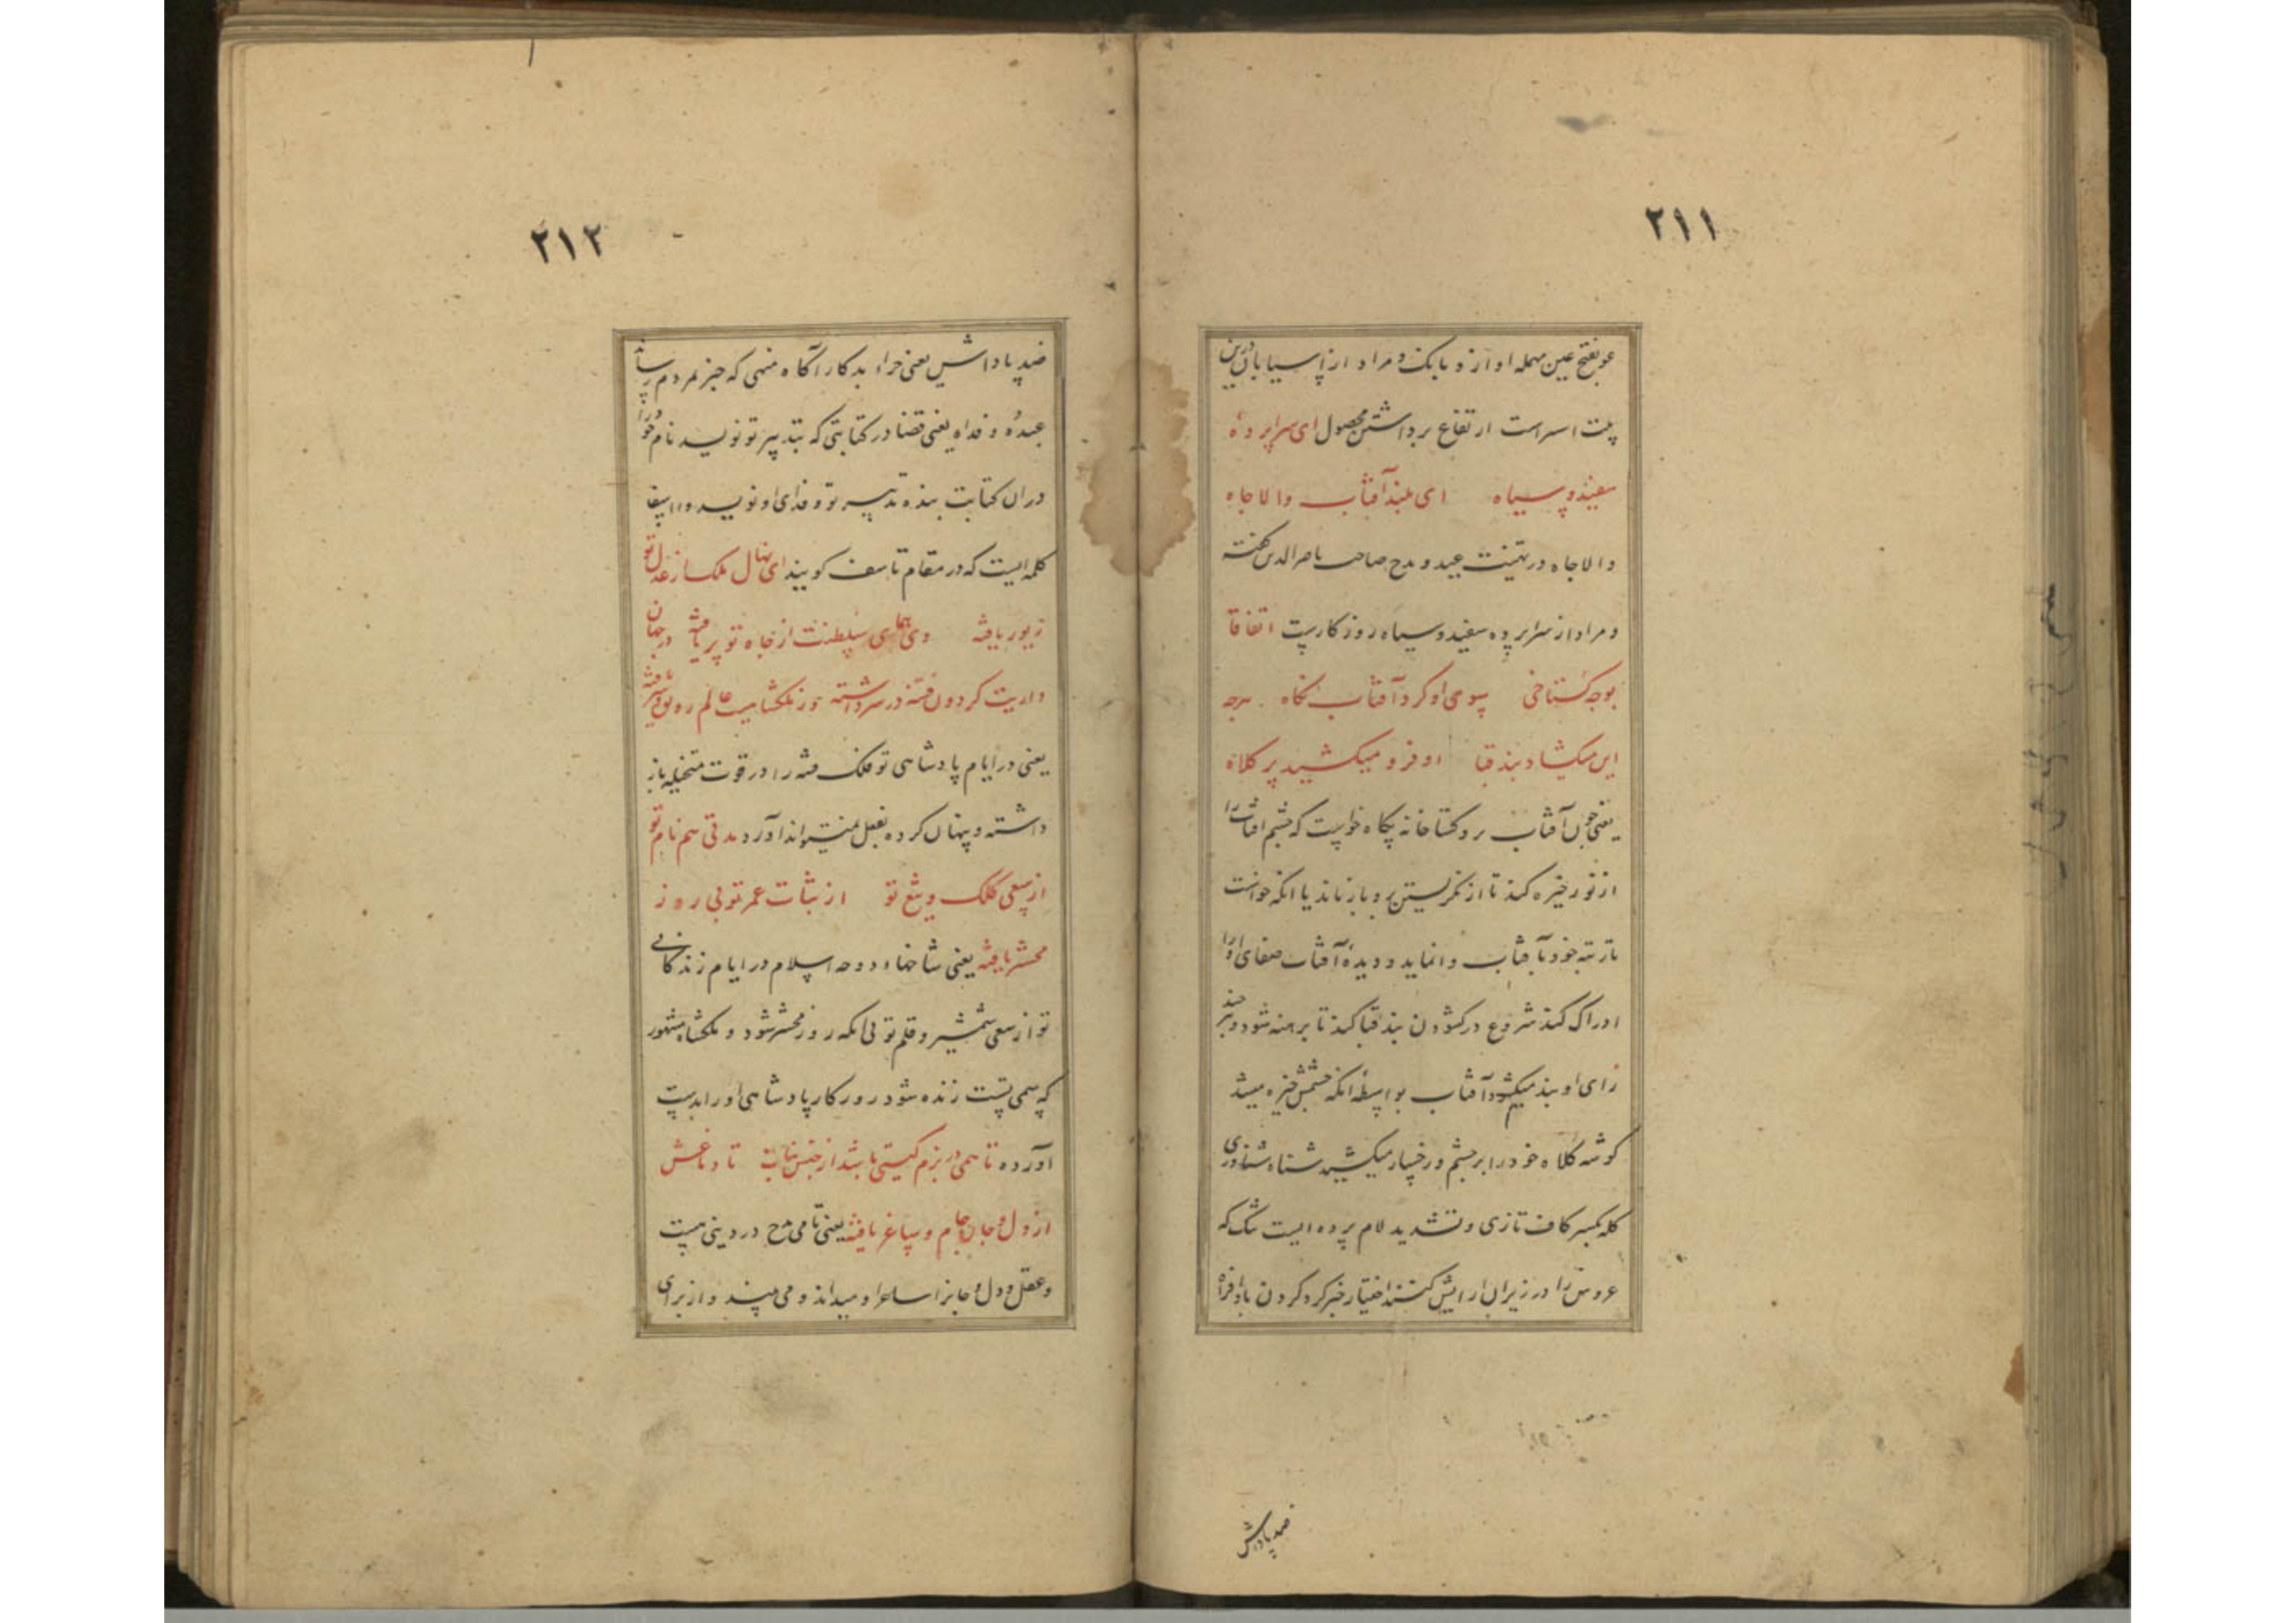 ۲۱۱
عو بفتح عین مهمله اواز و بانک و مراد از اسیابان درین
بیت اسراست ارتفاع برداشتن محصول ای سراپرده
سفید و سیاه ای بلند آفتاب والا جاه
والا جاه در تهنیت عید و مدح صاحب ناصر الدین گفته
و مراد از سراپرده سفید و سیاه روزکارست اتفاقا
بوجه کستاخی سوی او کرد آفتاب نکاه هرچه
این میکشاد بند قبا او فرو میکشید پر کلاه
یعنی چون آفتاب برو کستاخانه نکاه خواست که چشم افتاب را
از نور خیره کند تا از نکریستن برو باز ماند یا انکه خواست
تا رتبه خود بآفتاب وانماید و دیدهٔ آفتاب صفای او را
ادراک کند شروع در کشودن بند قبا کند تا برهنه شود و هر چند
رای او بند میکشود آفتاب بواسطهٔ انکه چشمش خیره میشد
کوشه کلاه خود را بر چشم و رخسار میکشید شناه شناوری
کله بکسر کاف تازی و تشدید لام پرده ایست تنک که
عروس را در زیر ان ارایش کنند اختیار خبر کرد کردن بادافراه
ضد پاداش
۲۱۲
ضد پاداش یعنی جزاء بد کار آکاه منهی که خبر بمردم رساند
عبده و فداه یعنی قضا در کتابتی که بتدبیر تو نویسد نام خود را
دران کتابت بنده تدبیر تو و فدای او نویسد وااسفا
کلمه ایست که در مقام تاسف کویند ای نهال ملک از عدل تو
زیور یافته وی همای سلطنت از جاه تو پر یافته در جهان
داریت کردون فتنه در سر داشته وز ملکشاهیت عالم رونق و فر یافته
یعنی در ایام پادشاهی تو فلک فتنه را در قوت متخیله باز
داشته و پنهان کرده بفعل نمیتواند آورد مدتی هم نام تو
از سعی کلک و تیغ تو از ثبات عمر تو بی روز
محشر یافته یعنی شاخهاء دوحه اسلام در ایام زندکانی
تو از سعی شمشیر و قلم تو بی انکه روز محشر شود و ملکشاه مشهور
که سمی تست زنده شود روزکار پادشاهی او را بدست
آورده تا همی در بزم کیتی باشد از جنس نبات تا دماغش
از دل و جان جام و ساغر یافته یعنی تا می مدح در دنیی هست
و عقل و دل و جانرا ساغر او میداند و می بیند و از برای